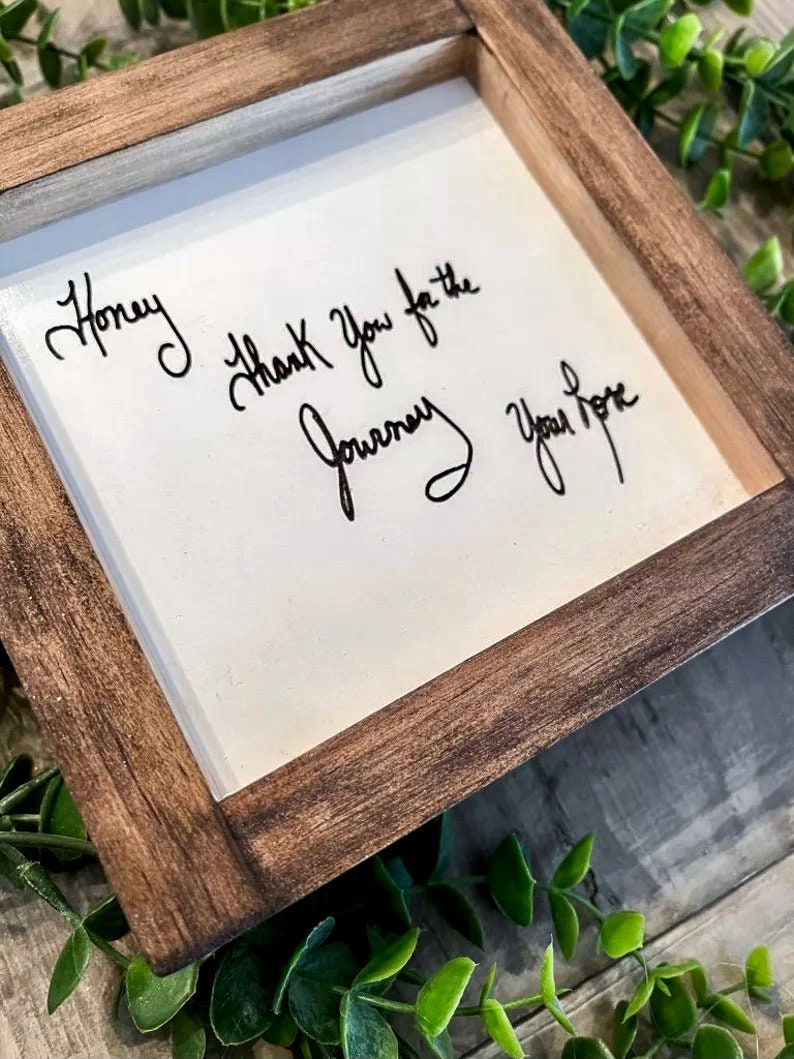 Honey
Thank You for the
Journey
Your Love